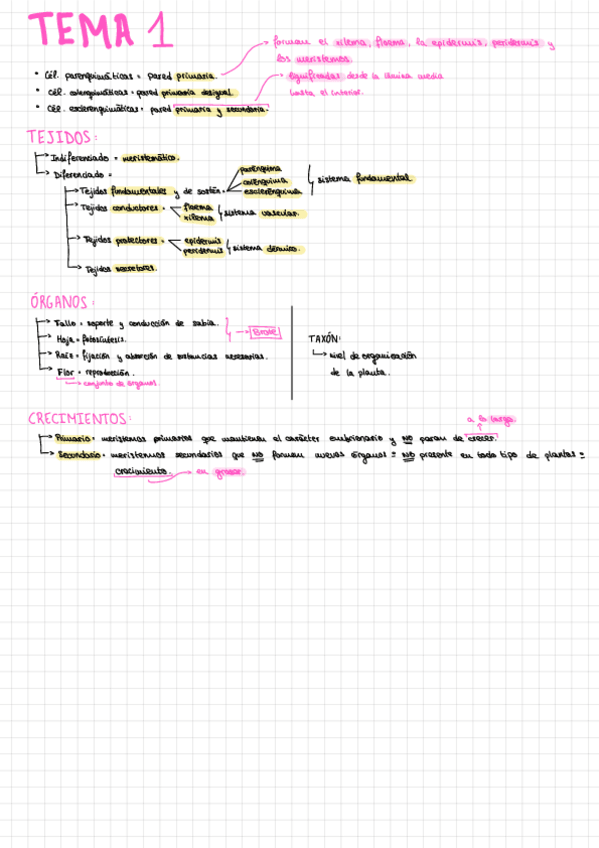 TEMA 1
forman el xilema, floema, la epidermis, peridermis y
los meristemos.
• Cél. parenquimáticas = pared primaria.
lignificadas desde la lámina media
hasta el interior.
• Cél. colenquimáticas = pared primaria desigual.
• Cél. esclerenquimáticas = pared primaria y secundaria.
TEJIDOS:
Indiferenciado = meristemático.
Diferenciado =
Tejidos fundamentales y de sostén =
parénquima
colénquima
esclerénquima
sistema fundamental
Tejidos conductores =
floema
xilema
sistema vascular.
Tejidos protectores =
epidermis
peridermis
sistema dérmico.
Tejidos secretores.
ÓRGANOS:
Tallo = soporte y conducción de savia.
Hoja = fotosíntesis.
→ Brote
Raíz = fijación y absorción de sustancias necesarias.
Flor = reproducción.
→ conjunto de órganos.
TAXÓN:
nivel de organización
de la planta.
CRECIMIENTOS:
a lo largo
Primario = meristemos primarios que mantienen el carácter embrionario y NO paran de crecer.
Secundario = meristemos secundarios que NO forman nuevos órganos = NO presente en todo tipo de plantas =
crecimiento. → en grosor.